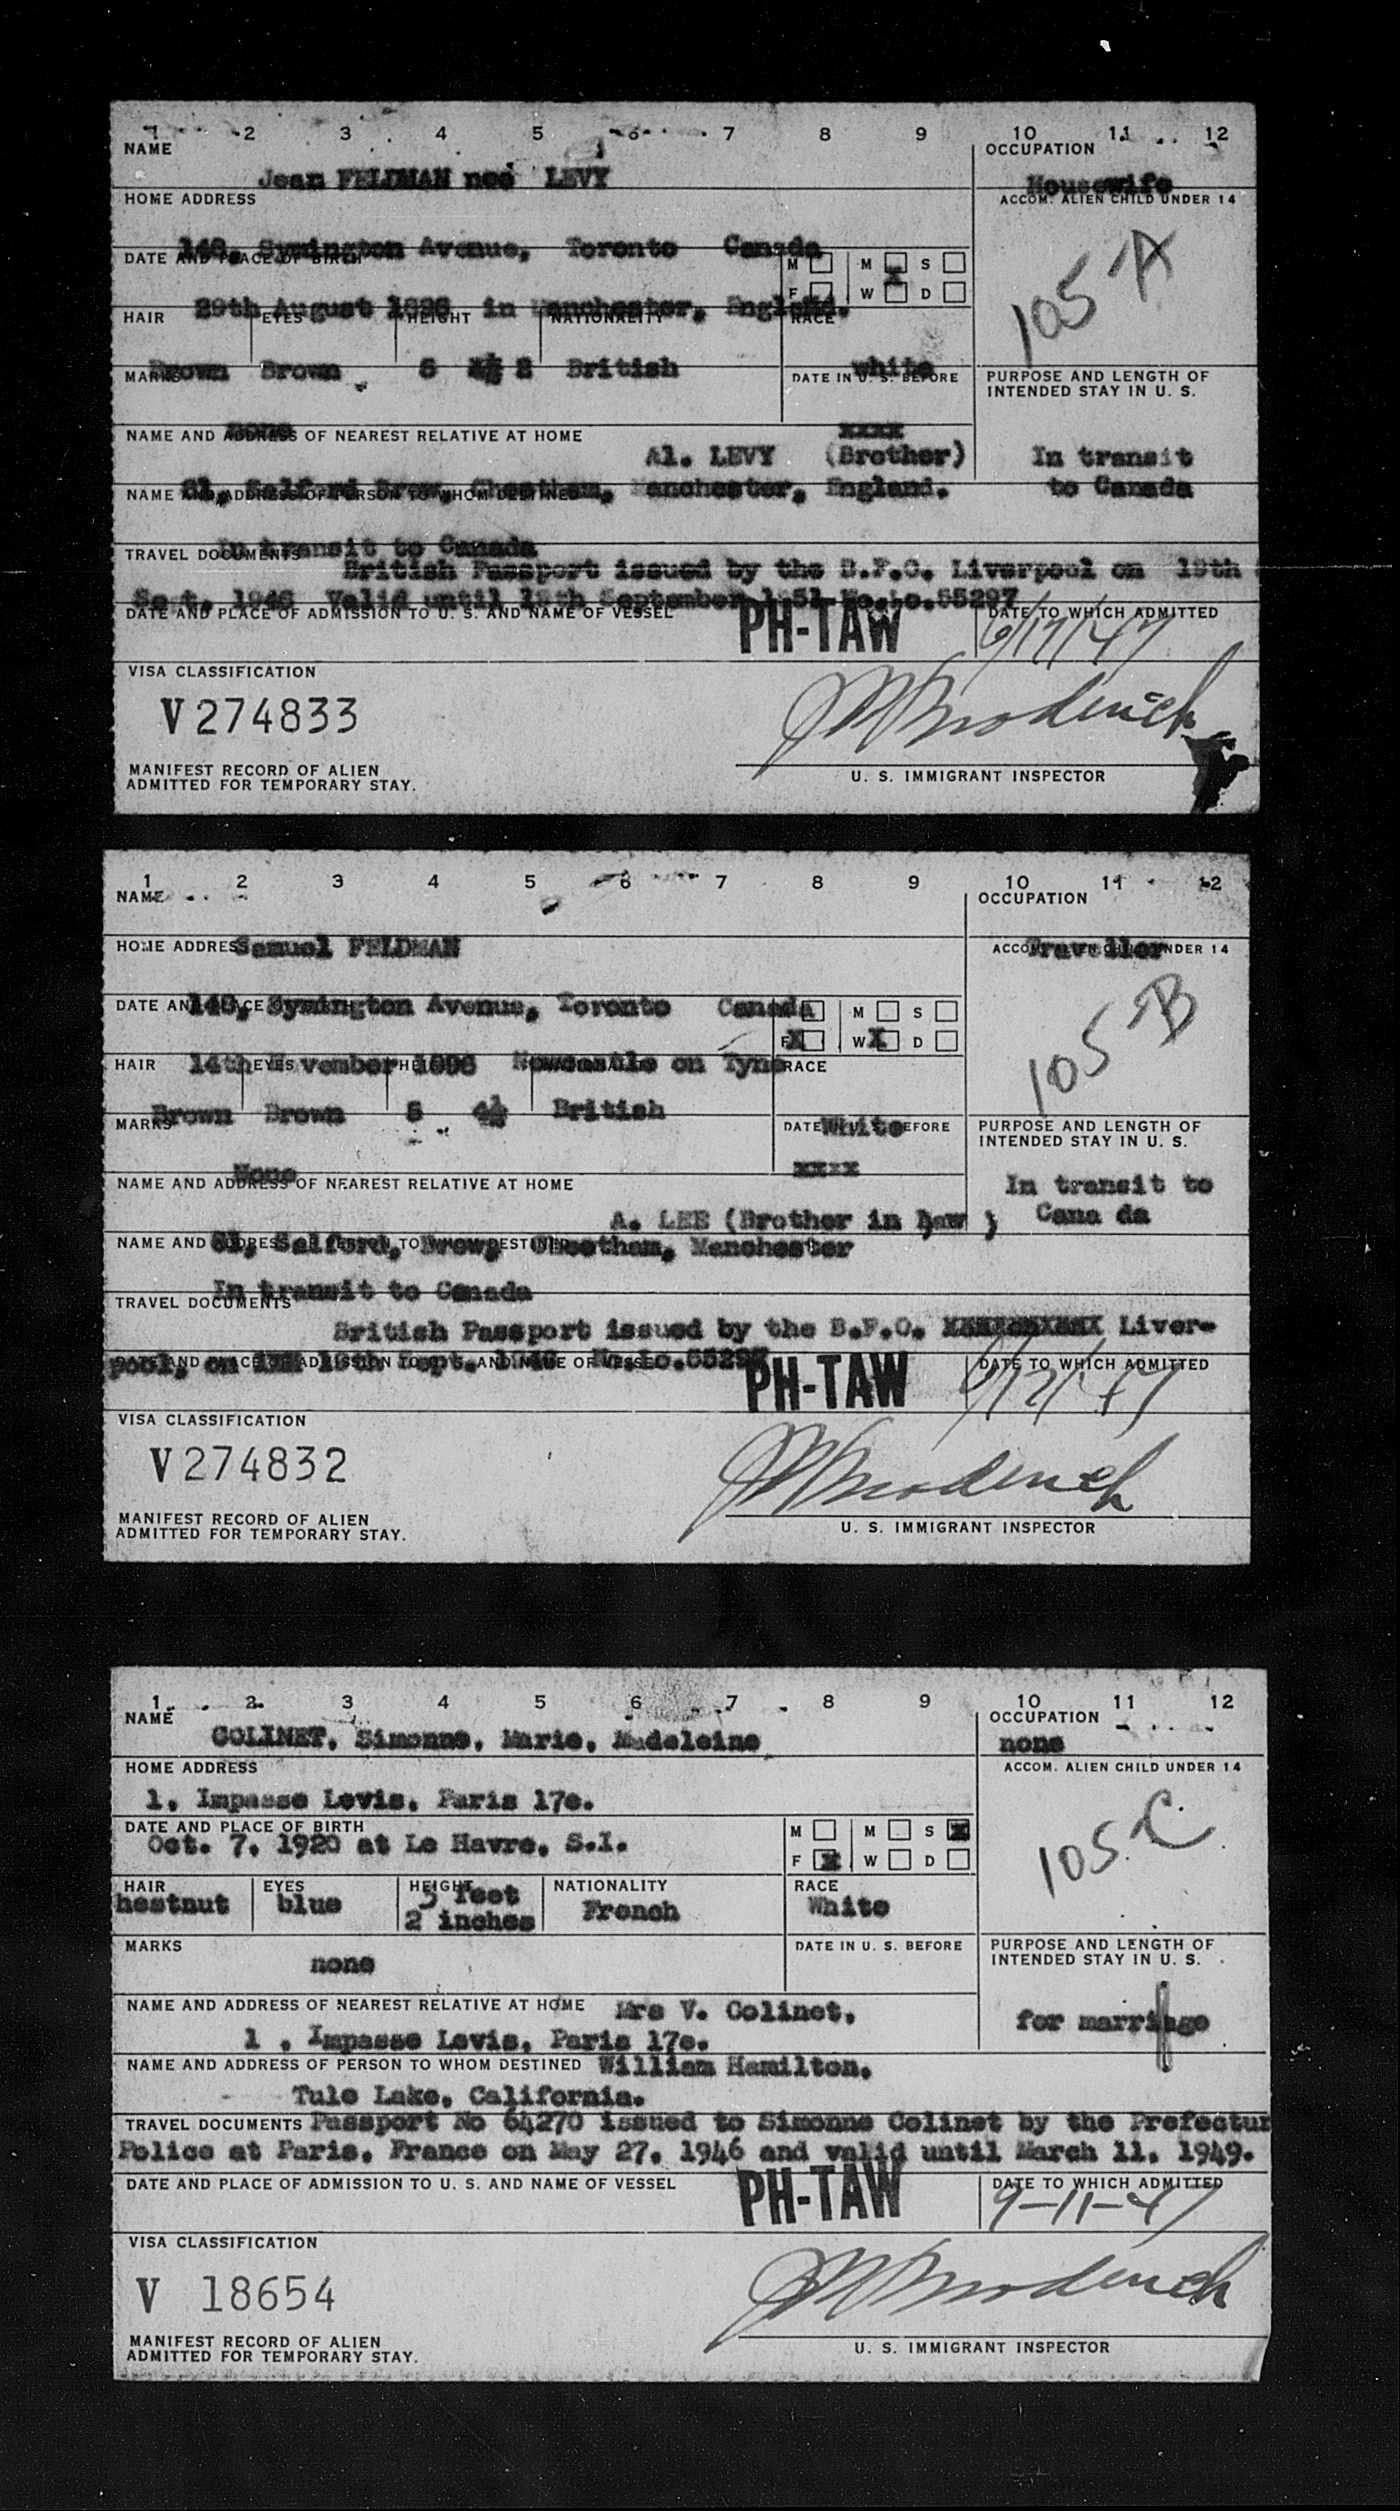 1 2 3 4 5 6 7 8 9 10 11 12
NAME OCCUPATION
Jean FELDMAN neé LEVY Housewife
HOME ADDRESS ACCOM. ALIEN CHILD UNDER 14
148, Symington Avenue, Toronto Canada
DATE AND PLACE OF BIRTH M M S
F W D
105 A
29th August 1896 in Manchester, England.
HAIR EYES HEIGHT NATIONALITY RACE
Brown Brown 5 2 British white
MARKS DATE IN U. S. BEFORE PURPOSE AND LENGTH OF
INTENDED STAY IN U. S.
none xxxx
NAME AND ADDRESS OF NEAREST RELATIVE AT HOME
Al. LEVY (Brother) In transit
81, Salford Brow, Cheetham, Manchester, England. to Canada
NAME AND ADDRESS OF PERSON TO WHOM DESTINED
In transit to Canada
TRAVEL DOCUMENTS
British Passport issued by the B.F.O. Liverpool on 19th
Sept. 1946 Valid until September 1951 No.Lo.55297
DATE AND PLACE OF ADMISSION TO U. S. AND NAME OF VESSEL PH-TAW DATE TO WHICH ADMITTED
VISA CLASSIFICATION
V274833
MANIFEST RECORD OF ALIEN
ADMITTED FOR TEMPORARY STAY. U. S. IMMIGRANT INSPECTOR
1 2 3 4 5 6 7 8 9 10 11 12
NAME OCCUPATION
HOME ADDRESS Samuel FELDMAN Traveller
ACCOM. ALIEN CHILD UNDER 14
DATE AND PLACE OF BIRTH 148, Symington Avenue, Toronto Canada
M M S
F X W X D
105 B
HAIR EYES HEIGHT NATIONALITY RACE
14th November 1896 Newcastle on Tyne
Brown Brown 5 4½ British White
MARKS DATE IN U. S. BEFORE PURPOSE AND LENGTH OF
INTENDED STAY IN U. S.
None xxxx
NAME AND ADDRESS OF NEAREST RELATIVE AT HOME In transit to
A. LEE (Brother in Law ) Cana da
81, Salford, Brow, Cheetham, Manchester
NAME AND ADDRESS OF PERSON TO WHOM DESTINED
In transit to Canada
TRAVEL DOCUMENTS
British Passport issued by the B.F.O. Liver-
pool, on 19th Sept. 1946 No.Lo.
DATE AND PLACE OF ADMISSION TO U. S. AND NAME OF VESSEL PH-TAW DATE TO WHICH ADMITTED
VISA CLASSIFICATION
V274832
MANIFEST RECORD OF ALIEN
ADMITTED FOR TEMPORARY STAY. U. S. IMMIGRANT INSPECTOR
1 2 3 4 5 6 7 8 9 10 11 12
NAME OCCUPATION
COLINET, Simonne, Marie, Madeleine none
HOME ADDRESS ACCOM. ALIEN CHILD UNDER 14
1, Impasse Levis, Paris 17e.
DATE AND PLACE OF BIRTH M M S x
Oct. 7, 1920 at Le Havre, S.I. F x W D
105 C
HAIR EYES HEIGHT NATIONALITY RACE
hestnut blue 5 feet French White
2 inches
MARKS DATE IN U. S. BEFORE PURPOSE AND LENGTH OF
INTENDED STAY IN U. S.
none
NAME AND ADDRESS OF NEAREST RELATIVE AT HOME Mrs V. Colinet, for marriage
1 , Impasse Levis, Paris 17e.
NAME AND ADDRESS OF PERSON TO WHOM DESTINED William Hamilton,
Tule Lake, California.
TRAVEL DOCUMENTS Passport No 64270 issued to Simonne Colinet by the Prefectur
Police at Paris, France on May 27, 1946 and valid until March 11, 1949.
DATE AND PLACE OF ADMISSION TO U. S. AND NAME OF VESSEL PH-TAW DATE TO WHICH ADMITTED
9-11-47
VISA CLASSIFICATION
V 18654
MANIFEST RECORD OF ALIEN
ADMITTED FOR TEMPORARY STAY. U. S. IMMIGRANT INSPECTOR